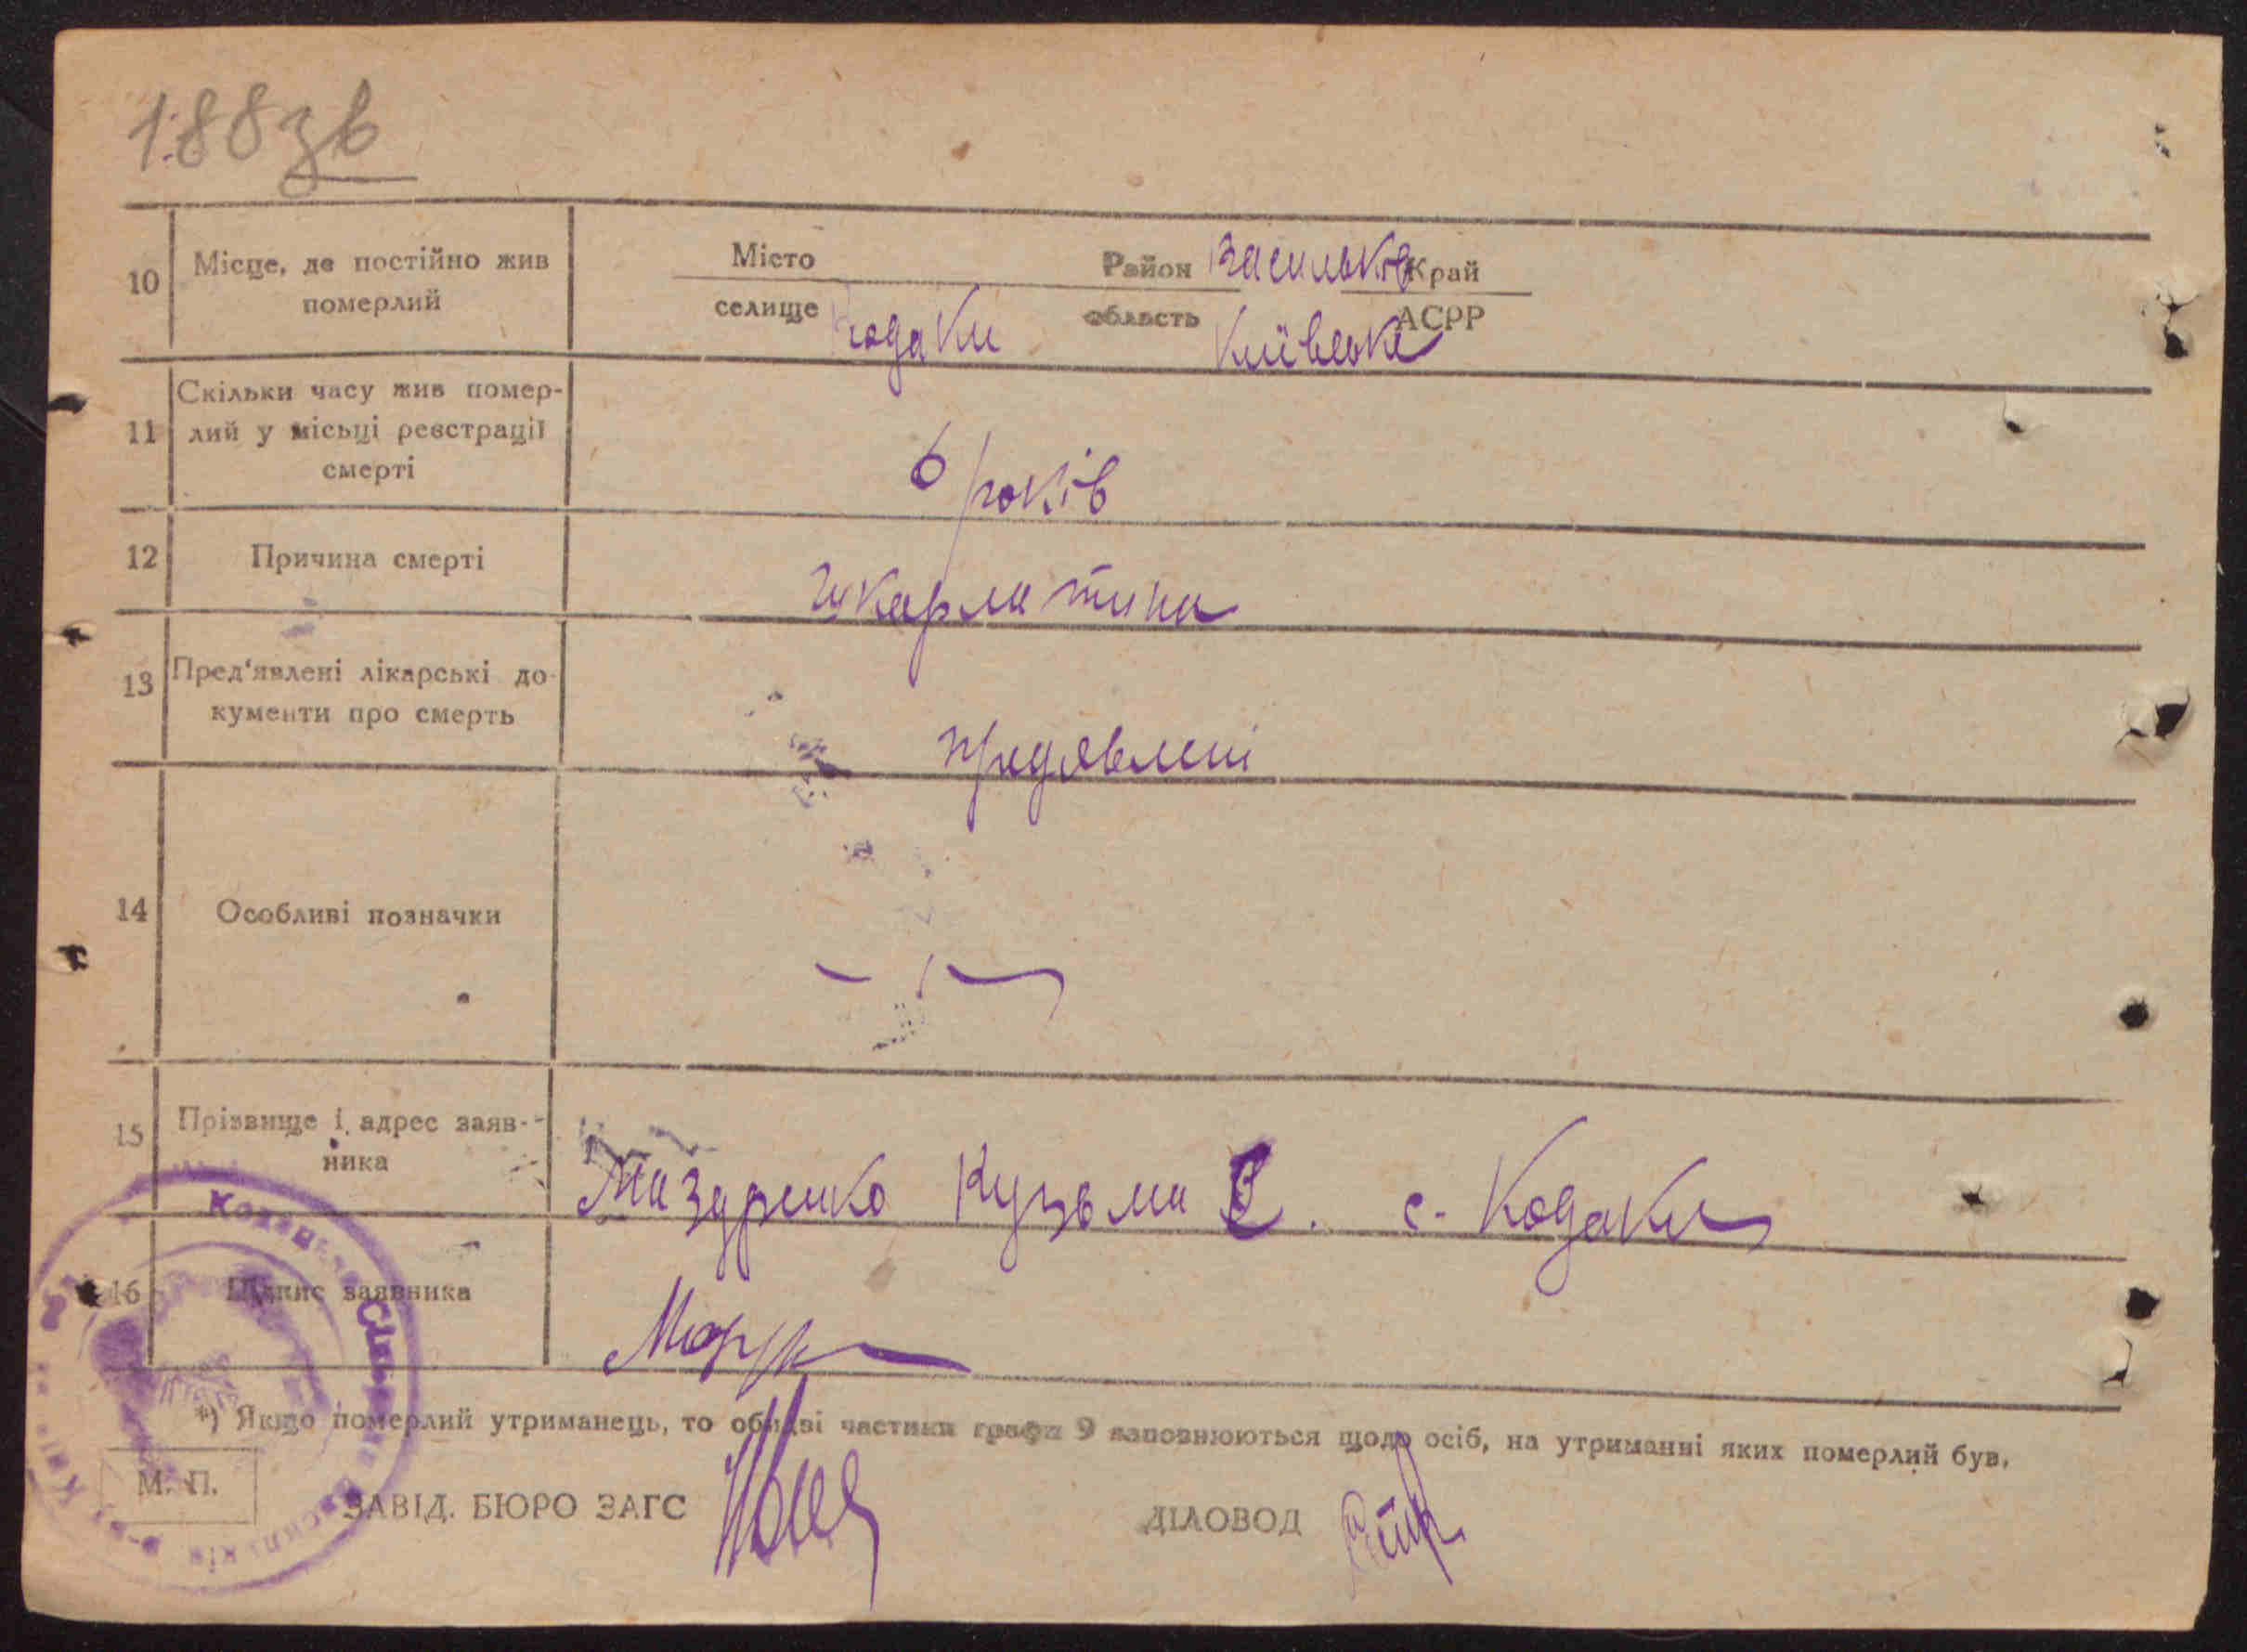 188зв
10 Місце, де постійно жив померлий
Місто Район Васильків Край
селище Кодаки область Київська АСРР
11 Скільки часу жив помер-
лий у місьці реєстрації
смерті
6 років
12 Причина смерті
шкарлатина
13 Пред'явлені лікарські до-
кументи про смерть
предявлені
14 Особливі позначки
15 Прізвище і адрес заяв-
ника
Мазуренко Кузьма С. с. Кодаки
16 Підпис заявника
*) Якщо померлий утриманець, то обидві частини графи 9 заповнюються щодо осіб, на утриманні яких померлий був.
М. П.
ЗАВІД. БЮРО ЗАГС ДІЛОВОД